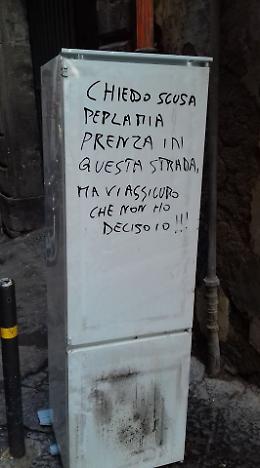 CHIEDO SCUSA
PER LA MIA
PRENZA IN
QUESTA STRADA,
MA VI ASSICURO
CHE NON HO
DECISO IO!!!